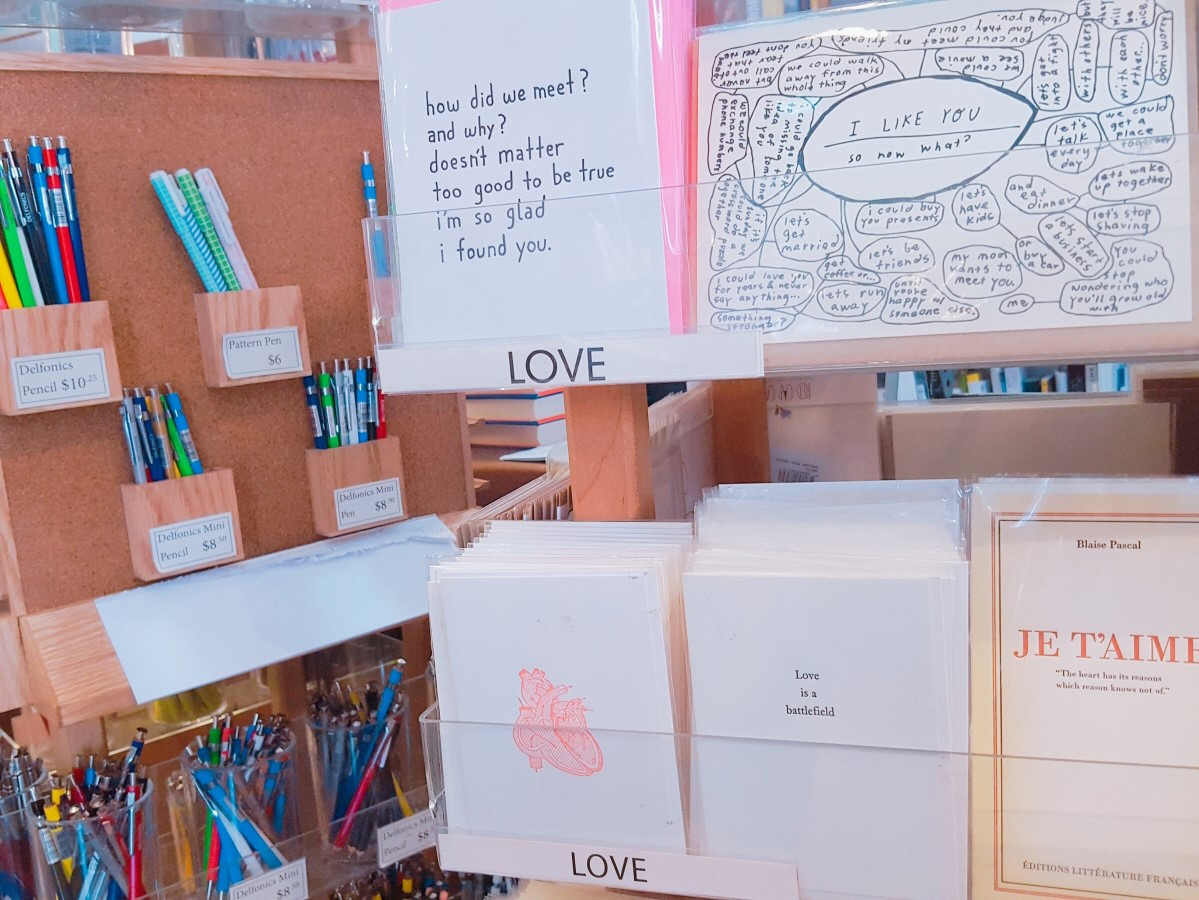 how did we meet?
and why?
doesn't matter
too good to be true
i'm so glad
i found you.
LOVE
I LIKE YOU
so now what?
judge you.
and they could
you could meet my friends!
(you dont feel the
fear that
call out of
but never
we could walk
away from this
whole thing
we could
see a movie
let's get
into a fight
with others
but
they
will
be
nice.
with each
other...
don't worry
we could
exchange
phone numbers
i could go back
to missing the
idea of someone
like you
let's
talk
every
day
we could
get a
place
together
lets wake
up together
and eat
dinner
lets
have
kids
i could buy
you presents
let's
get
married
if its
sunday we
could do a
crossword puzzle
together
let's stop
shaving
let's start
a business
or
buy
a car
let's be
friends
get
coffee or...
my mom
wants to
meet you.
you
could
stop
wondering who
you'll grow old
with
me
i could love you
for years & never
say anything...
lets run
away
until
you're
happy w/
someone else.
something
stronger?
Delfonics
Pencil $10.25
Pattern Pen
$6
Delfonics Mini
Pencil $8.50
Delfonics Mini
Pen $8.50
Delfonics Mini
$8
Delfonics Mini
$8.50
Love
is a
battlefield
LOVE
Blaise Pascal
JE T'AIME
"The heart has its reasons
which reason knows not of."
ÉDITIONS LITTÉRATURE FRANÇAIS